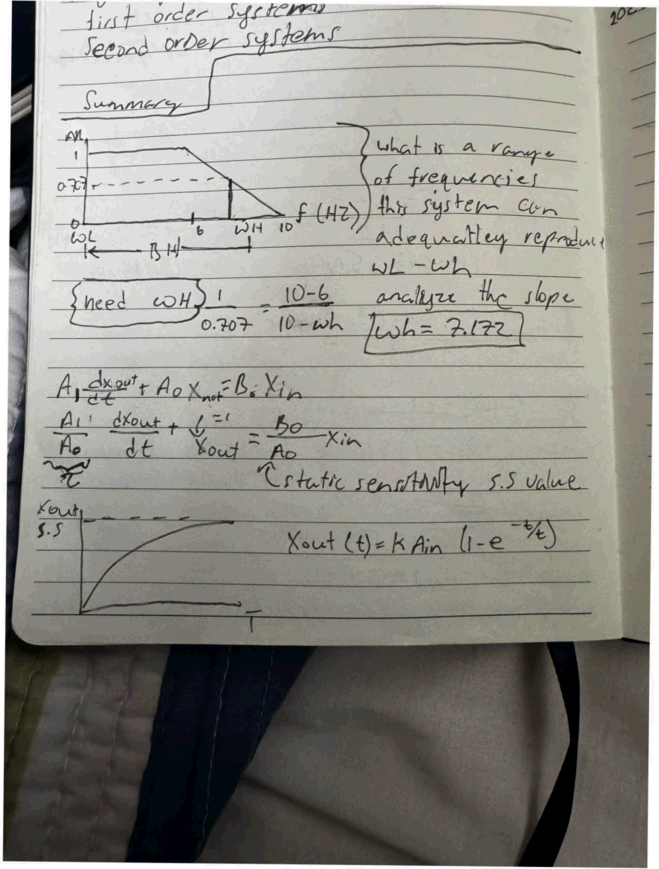 first order systems
Second order systems
20
Summary
M
1
0.707
0
6
WH
10
f (HZ)
WL
BH
what is a range
of frequencies
this system can
adequatley reproduce
WL - wh
analyze the slope
need WH
1/0.707 = 10-6/10-wh
wh = 7.172
A1 dxout/dt + A0 Xout = B0 Xin
A1/A0 dxout/dt + Xout = B0/A0 Xin
=1
τ
static sensitivity s.s value
Xout
s.s
Xout (t) = K Ain (1-e^-t/τ)